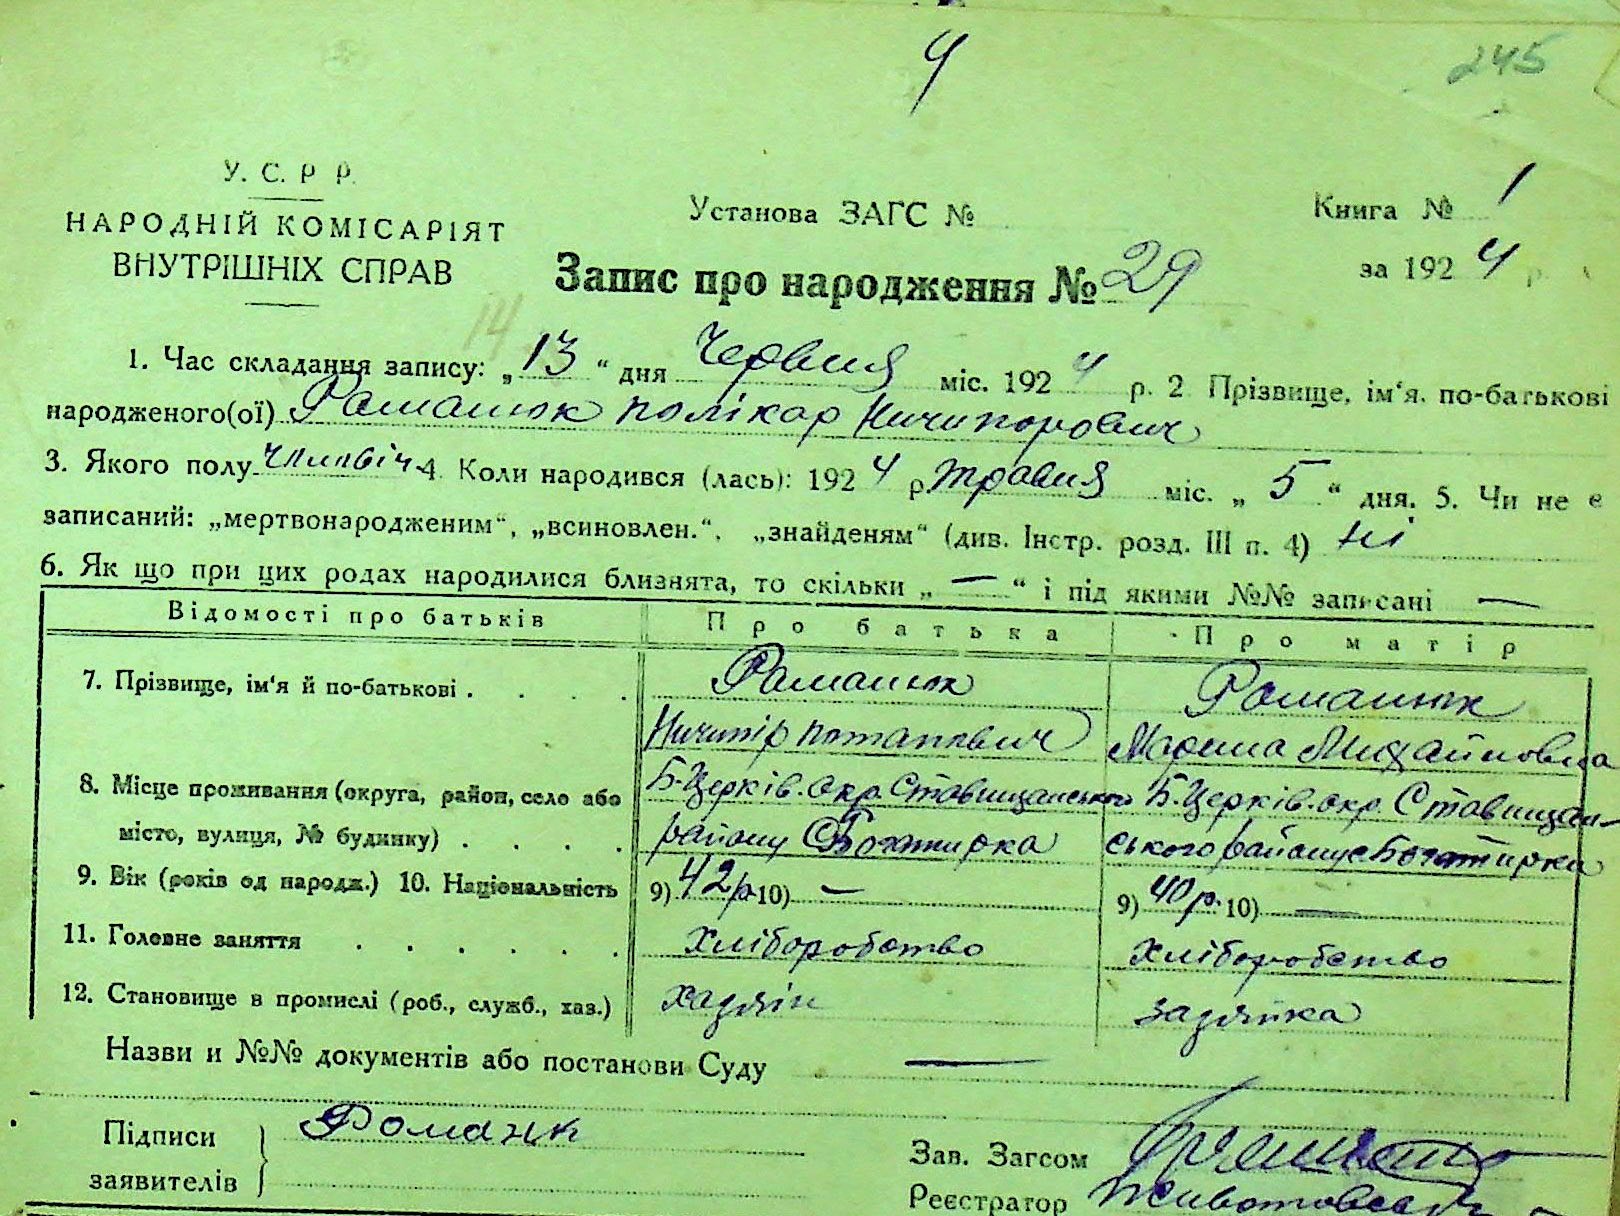 4
245
У. С. Р Р.
НАРОДНІЙ КОМІСАРІЯТ
ВНУТРІШНІХ СПРАВ
Установа ЗАГС №
Книга № 1
за 192 4 р.
Запис про народження № 29
14
1. Час складання запису: „ 13 “ дня Червня міс. 192 4 р. 2 Прізвище, ім‘я. по-батькові
народженого(ої) Романюк Полікар Ничипорович
3. Якого полу чиловіч 4. Коли народився (лась): 192 4 р травня міс. „ 5 “ дня. 5. Чи не є
записаний: „мертвонародженим“, „всиновлен.“, „знайденям“ (див. Інстр. розд. III п. 4) ні
6. Як що при цих родах народилися близнята, то скільки „ — “ і під якими №№ записані —
Відомості про батьків Про батька Про матір
7. Прізвище, ім‘я й по-батькові . . . . Романюк Романюк
Ничипір Потапович Марина Михайловна
8. Місце проживання (округа, район, село або Б.Церків. окр. Ставищанського Б.Церків. окр. Ставищан-
місто, вулиця, № будинку) . . . . району с Богатирка ського району с Богатирка
9. Вік (років од народж.) 10. Національність 9) 42 р. 10) — 9) 40 р. 10) —
11. Головне заняття . . . . . . хліборобство хліборобство
12. Становище в промислі (роб., служб., хаз.) хазяін хазяйка
Назви и №№ документів або постанови Суду —
Підписи Романюк
заявителів
Зав. Загсом
Реєстратор